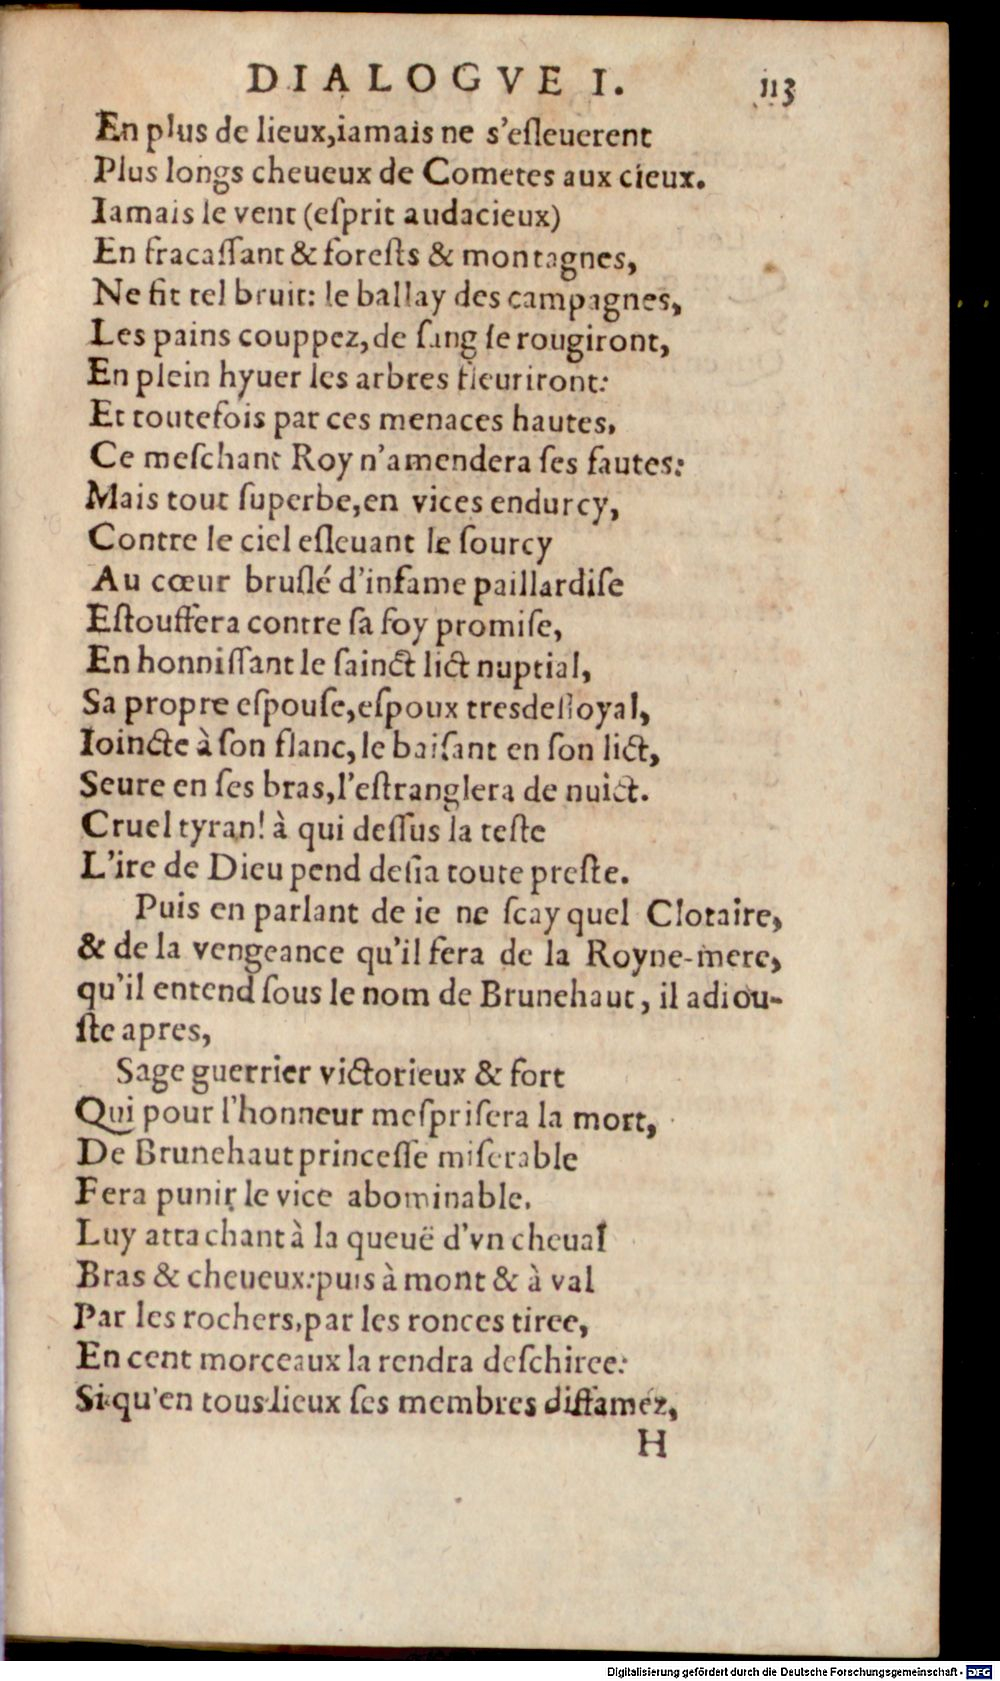 DIALOGVE I. 113
En plus de lieux,iamais ne s'eſleuerent
Plus longs cheueux de Cometes aux cieux.
Iamais le vent (eſprit audacieux)
En fracaſſant & foreſts & montagnes,
Ne fit tel bruit: le ballay des campagnes,
Les pains couppez,de ſang ſe rougiront,
En plein hyuer les arbres fleuriront:
Et toutefois par ces menaces hautes,
Ce meſchant Roy n'amendera ſes fautes:
Mais tout ſuperbe,en vices endurcy,
Contre le ciel eſleuant le ſourcy
Au cœur bruſlé d'infame paillardiſe
Eſtouffera contre ſa foy promiſe,
En honniſſant le ſainct lict nuptial,
Sa propre eſpouſe,eſpoux tresdeſloyal,
Ioincte à ſon flanc,le baiſant en ſon lict,
Seure en ſes bras,l'eſtranglera de nuict.
Cruel tyran! à qui deſſus la teſte
L'ire de Dieu pend deſia toute preſte.
Puis en parlant de ie ne ſcay quel Clotaire,
& de la vengeance qu'il fera de la Royne-mere,
qu'il entend ſous le nom de Brunehaut, il adiou-
ſte apres,
Sage guerrier victorieux & fort
Qui pour l'honneur meſpriſera la mort,
De Brunehaut princeſſe miſerable
Fera punir le vice abominable.
Luy attachant à la queuë d'vn cheual
Bras & cheueux:puis à mont & à val
Par les rochers,par les ronces tiree,
En cent morceaux la rendra deſchiree:
Si qu'en tous lieux ſes membres diffamez,
H
Digitalisierung gefördert durch die Deutsche Forschungsgemeinschaft - DFG